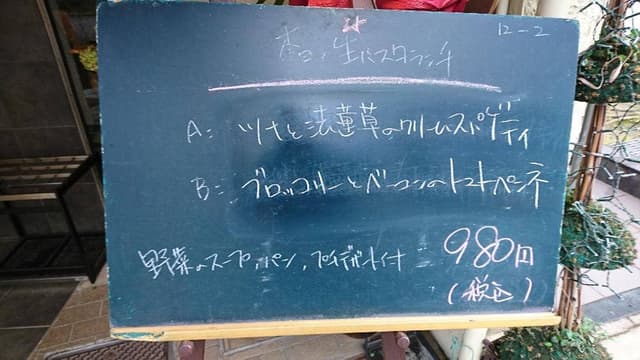 12-2
本日の生パスタランチ
A: ツナと法蓮草のクリームスパゲティ
B: ブロッコリーとベーコンのトマトペンネ
野菜のスープ、パン、プチデザート付
980円
(税込)